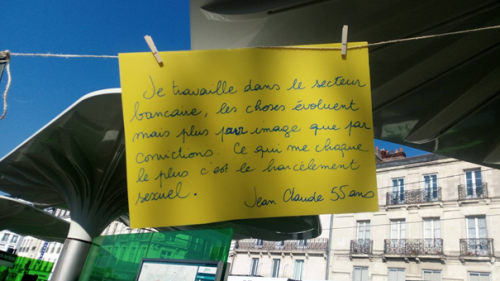 Je travaille dans le secteur
bancaire, les choses évoluent
mais plus par image que par
convictions. Ce qui me choque
le plus c'est le harcèlement
sexuel.
Jean Claude 55 ans